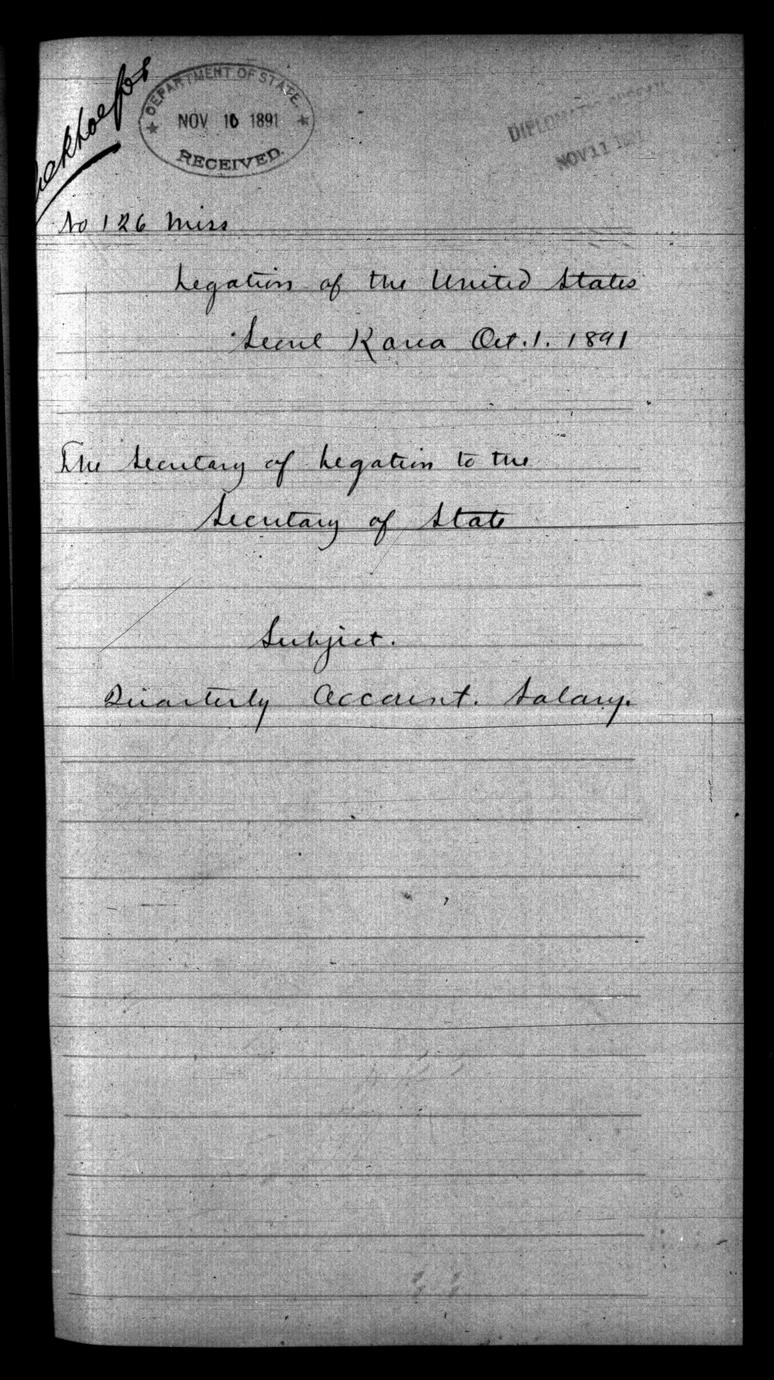 DEPARTMENT OF STATE.
NOV 10 1891
RECEIVED.
DIPLOMATIC
NOV 11 1891
No 126 Miss
Legation of the United States
Seoul Korea Oct. 1. 1891
The Secretary of Legation to the
Secretary of State
Subject.
Quarterly Account. Salary.